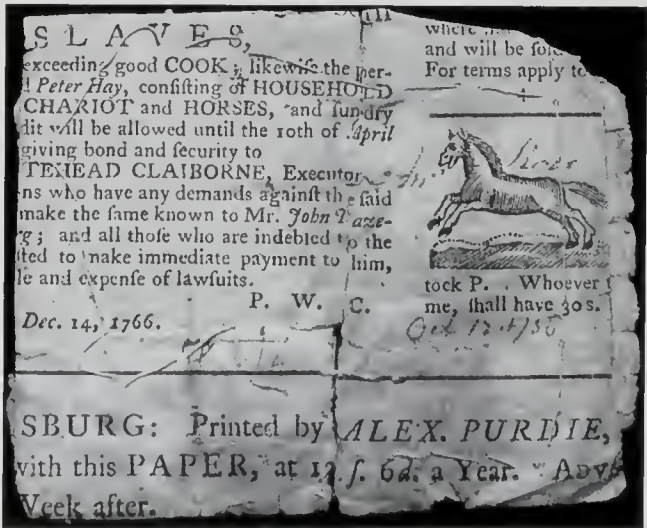 S L A V E S,
exceeding good COOK; likewiſe the per-
Peter Hay, conſiſting of HOUSEHOLD
CHARIOT and HORSES, and ſundry
dit will be allowed until the 10th of April
giving bond and ſecurity to
TEHEAD CLAIBORNE, Executor
ns who have any demands againſt the ſaid
make the ſame known to Mr. John
g; and all thoſe who are indebted to the
ſted to make immediate payment to him,
le and expenſe of lawſuits.
P. W. C.
Dec. 14, 1766.
and will be ſold
For terms apply to
tock P. . Whoever
me, ſhall have 30s.
SBURG: Printed by ALEX. PURDIE,
with this PAPER, at 12 ſ. 6d. a Year. ADV
Week after.